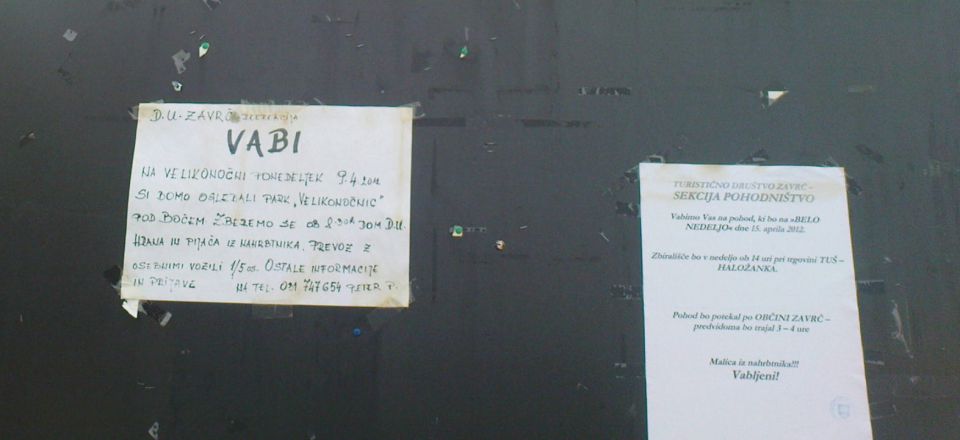 D.U. ZAVRČ
VABI
NA VELIKONOČNI PONEDELJEK 9.4.2012
SI BOMO OGLEDALI PARK „VELIKONOČNIC"
POD BOČEM ZBEREMO SE OB 8.30h DOM D.U.
HRANA IN PIJAČA IZ NAHRBTNIKA. PREVOZ Z
OSEBNIMI VOZILI OSTALE INFORMACIJE
IN PRIJAVE NA TEL. 031 747654 PETER P.
TURISTIČNO DRUŠTVO ZAVRČ -
SEKCIJA POHODNIŠTVO
Vabimo Vas na pohod, ki bo na »BELO
NEDELJO« dne 15. aprila 2012.
Zbirališče bo v nedeljo ob 14 uri pri trgovini TUŠ –
HALOŽANKA.
Pohod bo potekal po OBČINI ZAVRČ –
predvidoma bo trajal 3 – 4 ure
Malica iz nahrbtnika!!!
Vabljeni!